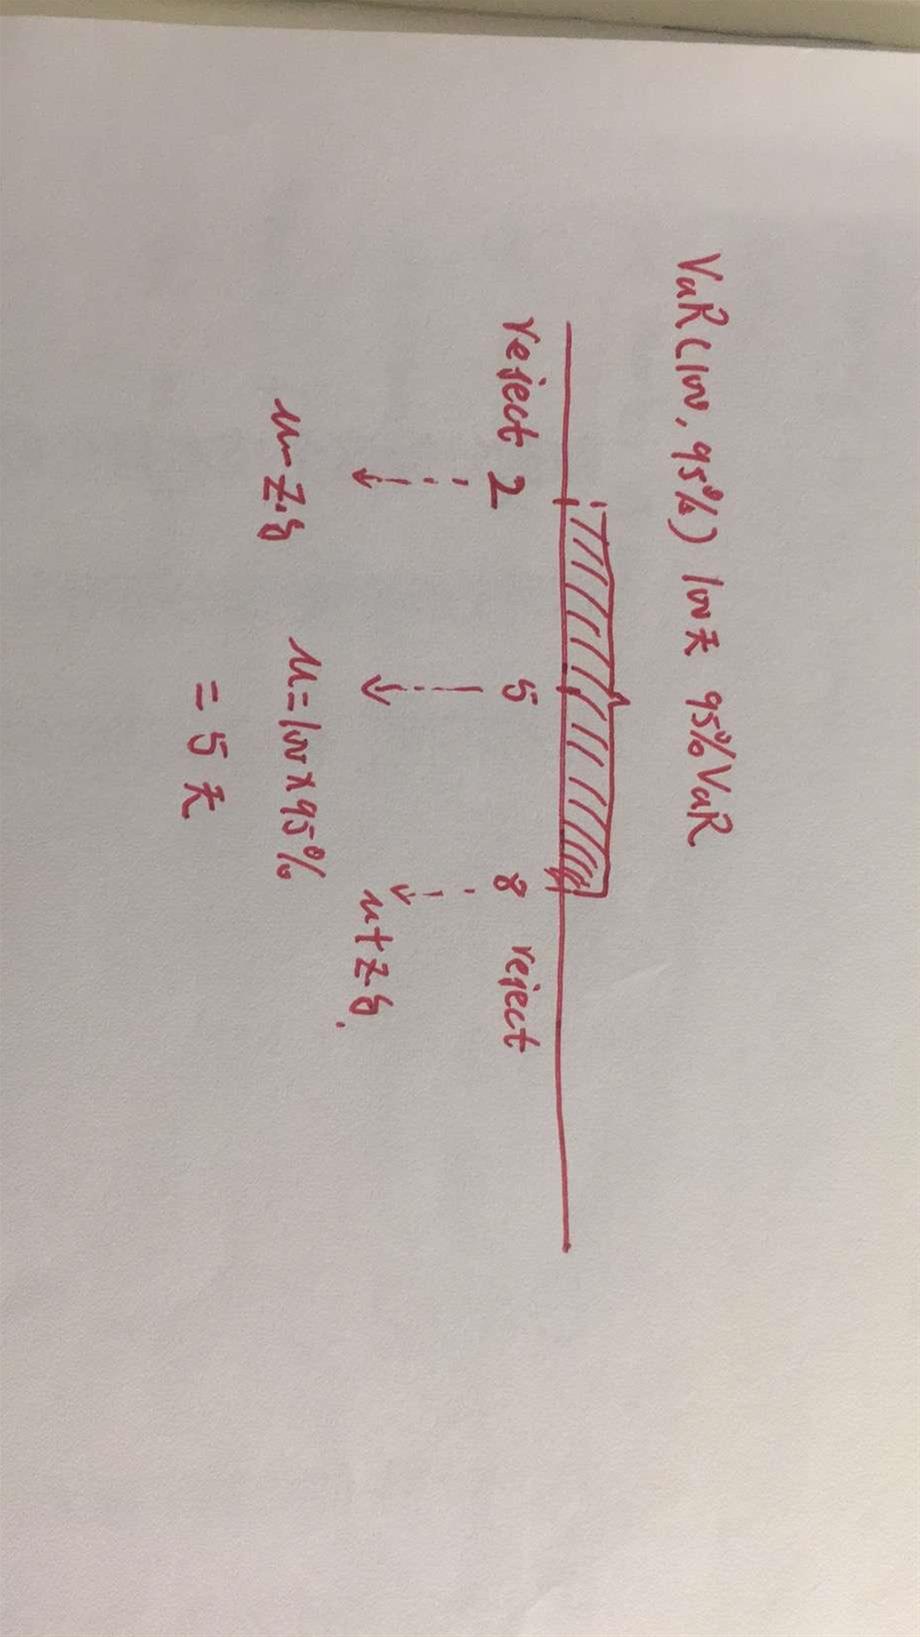 VaR(100, 95%) 100天 95%VaR
reject 2 5 8 reject
μ-z·δ μ=100×95% μ+z·δ.
=5天